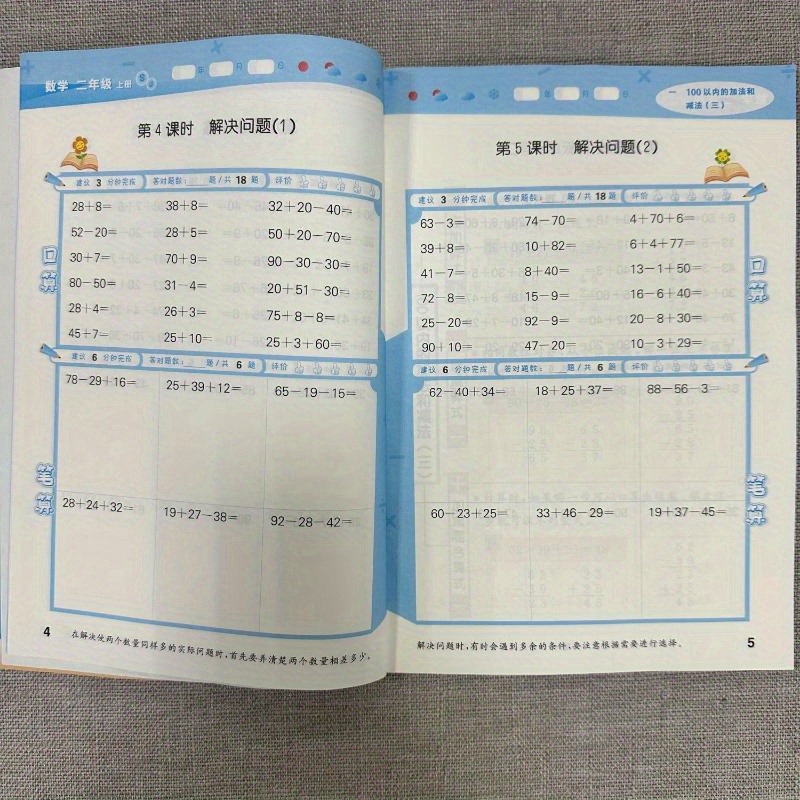 数学 二年级 上册
年 月 日
第4课时 解决问题(1)
建议 3 分钟完成 答对题数: 题/共 18 题 评价
口算
28+8= 38+8= 32+20-40=
52-20= 28+5= 50+20-70=
30+7= 70+9= 90-30-30=
80-50= 31-4= 20+51-30=
28+4= 26+3= 75+8-8=
45+7= 25+10= 25+3+60=
建议 6 分钟完成 答对题数: 题/共 6 题 评价
笔算
78-29+16= 25+39+12= 65-19-15=
28+24+32= 19+27-38= 92-28-42=
4
在解决使两个数量同样多的实际问题时,首先要弄清楚两个数量相差多少。
年 月 日
一 100以内的加法和
减法(三)
第5课时 解决问题(2)
建议 3 分钟完成 答对题数: 题/共 18 题 评价
口算
63-3= 74-70= 4+70+6=
39+8= 10+82= 6+4+77=
41-7= 8+40= 13-1+50=
72-8= 15-9= 16-6+40=
25-20= 92-9= 20-8+30=
90+10= 47-20= 10-3+29=
建议 6 分钟完成 答对题数: 题/共 6 题 评价
笔算
62-40+34= 18+25+37= 88-56-3=
60-23+25= 33+46-29= 19+37-45=
解决问题时,有时会遇到多余的条件,要注意根据需要进行选择。
5